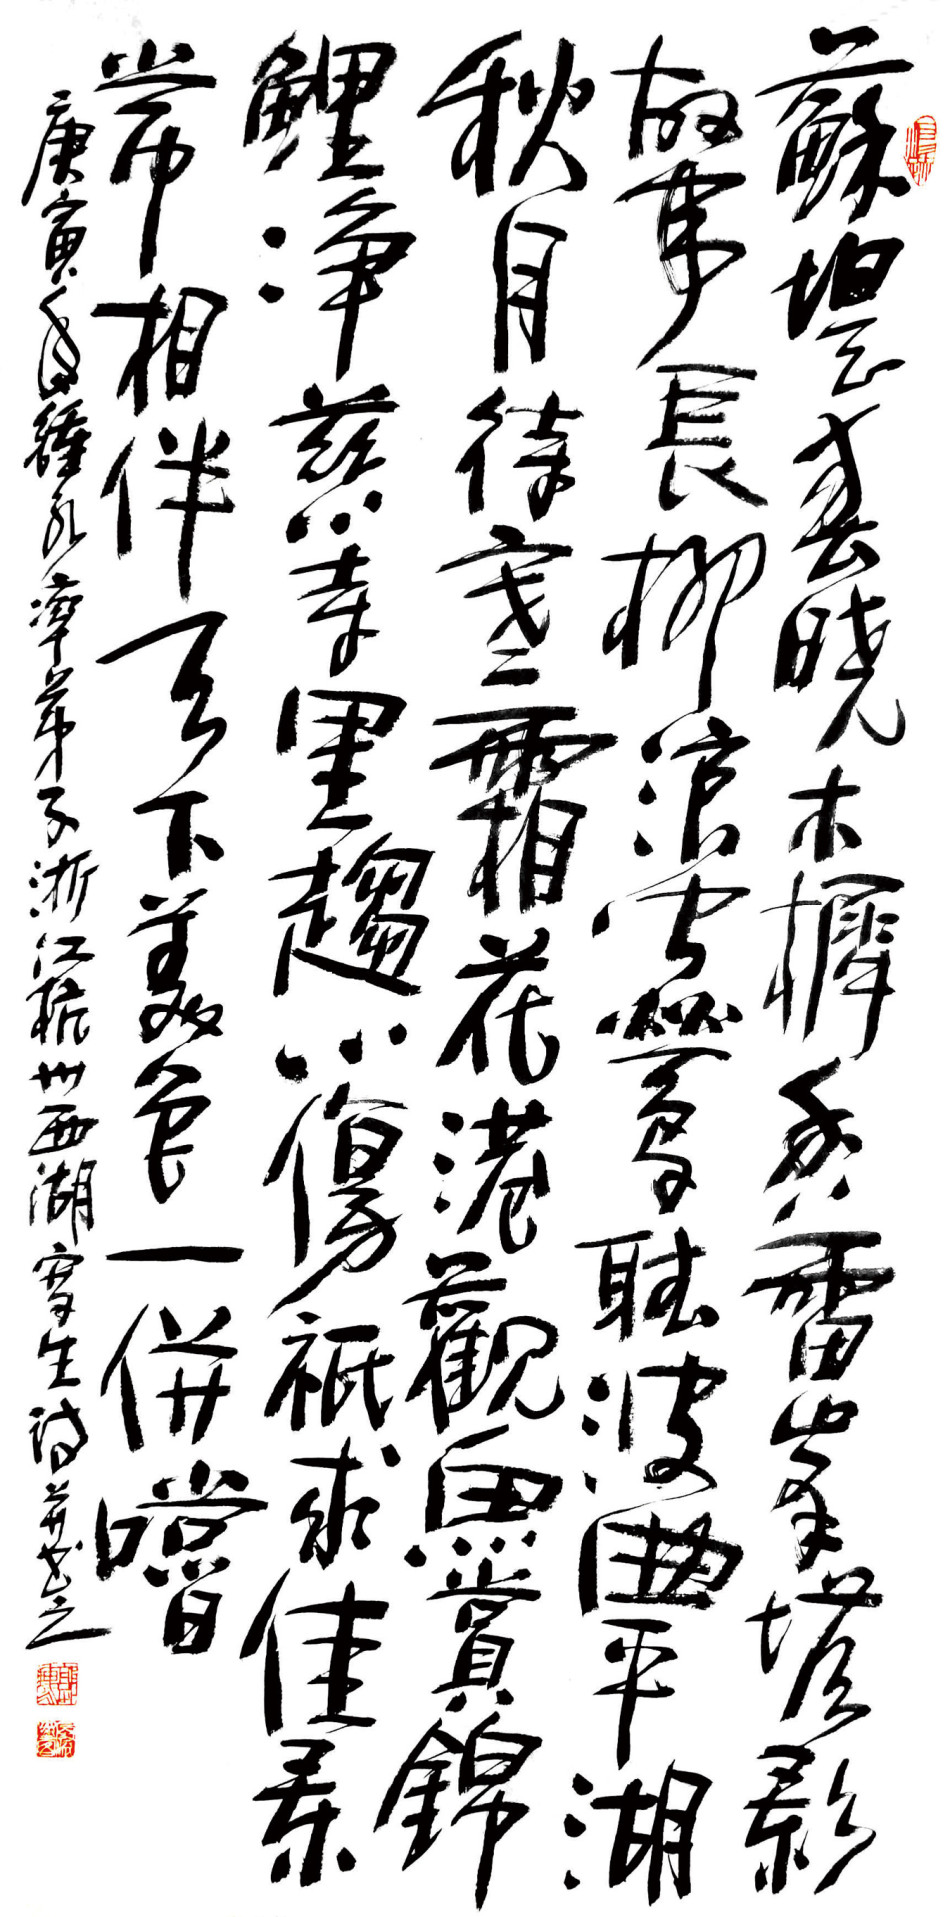 蘇堤春曉木樨香雷峯塔影
故事長柳浪聞鶯聽波曲平湖
秋月待寒霜花港觀魚賞錦
鯉淨慈寺里趨心傷祇求佳景
常相伴天下美色一併嚐
庚寅年率弟子浙江杭州西湖寫生詩并書之